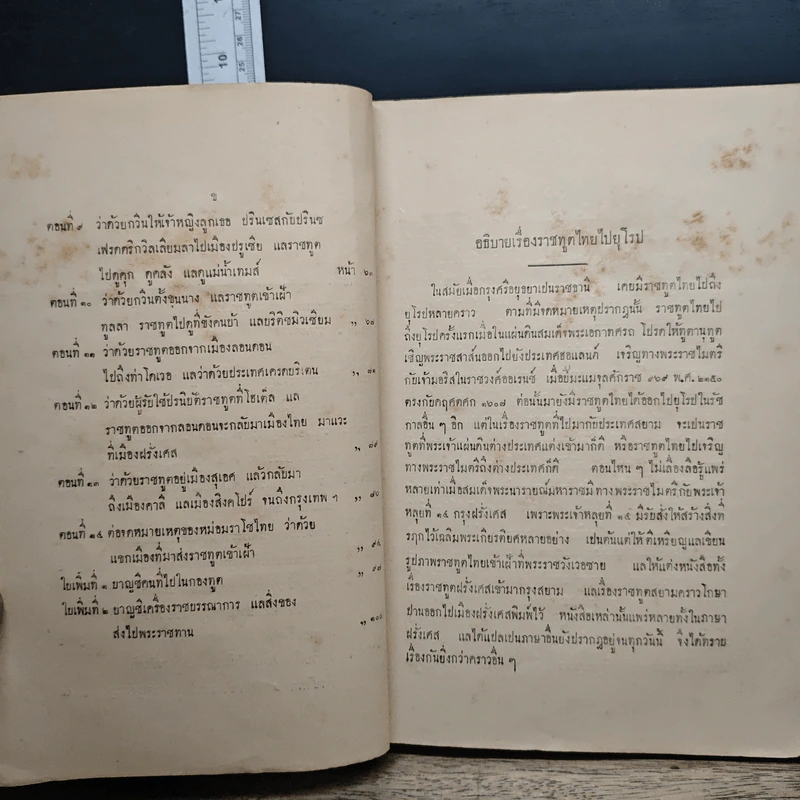 ข
ตอนที่ ๙ ว่าด้วยกวินให้เจ้าหญิงลูกเธอ ปรินเซสกับปรินซ
เฟรดดริกวิลเลียมลาไปเมืองปรูเซีย แลราชทูต
ไปดูคุก ดูคลัง แลดูแม่น้ำเทมส์ หน้า
ตอนที่ ๑๐ ว่าด้วยกวินตั้งขุนนาง แลราชทูตเข้าเฝ้า
ทูลลา ราชทูตไปดูที่ขังคนบ้า แลบริติชมิวเซียม ,,
ตอนที่ ๑๑ ว่าด้วยราชทูตออกจากเมืองลอนดอน
ไปถึงท่าโดเวอ แลว่าด้วยประเทศเครตบริเตน ,, ๘๑
ตอนที่ ๑๒ ว่าด้วยผู้รับใช้ปรนิบัติราชทูตที่โฮเต็ล แล
ราชทูตออกจากลอนดอนจะกลับมาเมืองไทย มาแวะ
ที่เมืองฝรั่งเศส ,,
ตอนที่ ๑๓ ว่าด้วยราชทูตอยู่เมืองสุเอศ แล้วกลับมา
ถึงเมืองคาลี แลเมืองสิงคโปร์ จนถึงกรุงเทพ ฯ ,,
ตอนที่ ๑๔ ต่อจดหมายเหตุของหม่อมราโชไทย ว่าด้วย
แขกเมืองที่มาส่งราชทูตเข้าเฝ้า ,,
ใบเพิ่มที่ ๑ บาญชีคนที่ไปในกองทูต ,,
ใบเพิ่มที่ ๒ บาญชีเครื่องราชบรรณาการ แลสิ่งของ
ส่งไปพระราชทาน ,,
อธิบายเรื่องราชทูตไทยไปยุโรป
ในสมัยเมื่อกรุงศรีอยุธยาเปนราชธานี เคยมีราชทูตไทยไปถึง
ยุโรปหลายคราว ตามที่มีจดหมายเหตุปรากฏนั้น ราชทูตไทยไป
ถึงยุโรปครั้งแรกเมื่อในแผ่นดินสมเด็จพระเอกาทศรถ โปรดให้ทูตานุทูต
เชิญพระราชสาส์นออกไปยังประเทศฮอแลนด์ เจริญทางพระราชไมตรี
กับเจ้ามอริสในราชวงค์ออเรนซ์ เมื่อปีมะแมจุลศักราช ๙๖๙ พ.ศ. ๒๑๕๐
ตรงกับคฤศตศก ๑๖๐๗ ต่อนั้นมายังมีราชทูตไทยได้ออกไปยุโรปในรัช
กาลอื่น ๆ อิก แต่ในเรื่องราชทูตที่ไปมากับประเทศสยาม จะเปนราช
ทูตที่พระเจ้าแผ่นดินต่างประเทศแต่งเข้ามาก็ดี หรือราชทูตไทยไปเจริญ
ทางพระราชไมตรีถึงต่างประเทศก็ดี ตอนไหน ๆ ไม่เลื่องลือรู้แพร่
หลายเท่าเมื่อสมเด็จพระนารายณ์มหาราชมีทางพระราชไมตรีกับพระเจ้า
หลุยที่ ๑๔ กรุงฝรั่งเศส เพราะพระเจ้าหลุยที่ ๑๔ มีรับสั่งให้สร้างสิ่งที่
รฦกไว้เฉลิมพระเกียรติยศหลายอย่าง เปนต้นแต่ให้ตีเหรียญแลเขียน
รูปภาพราชทูตไทยเข้าเฝ้าที่พระราชวังเวอซาย แลให้แต่งหนังสือทั้ง
เรื่องราชทูตฝรั่งเศสเข้ามากรุงสยาม แลเรื่องราชทูตสยามคราวโกษา
ปานออกไปเมืองฝรั่งเศสพิมพ์ไว้ หนังสือเหล่านั้นแพร่หลายทั้งในภาษา
ฝรั่งเศส แลได้แปลเปนภาษาอื่นยังปรากฏอยู่จนทุกวันนี้ จึงได้ทราบ
เรื่องกันยิ่งกว่าคราวอื่น ๆ